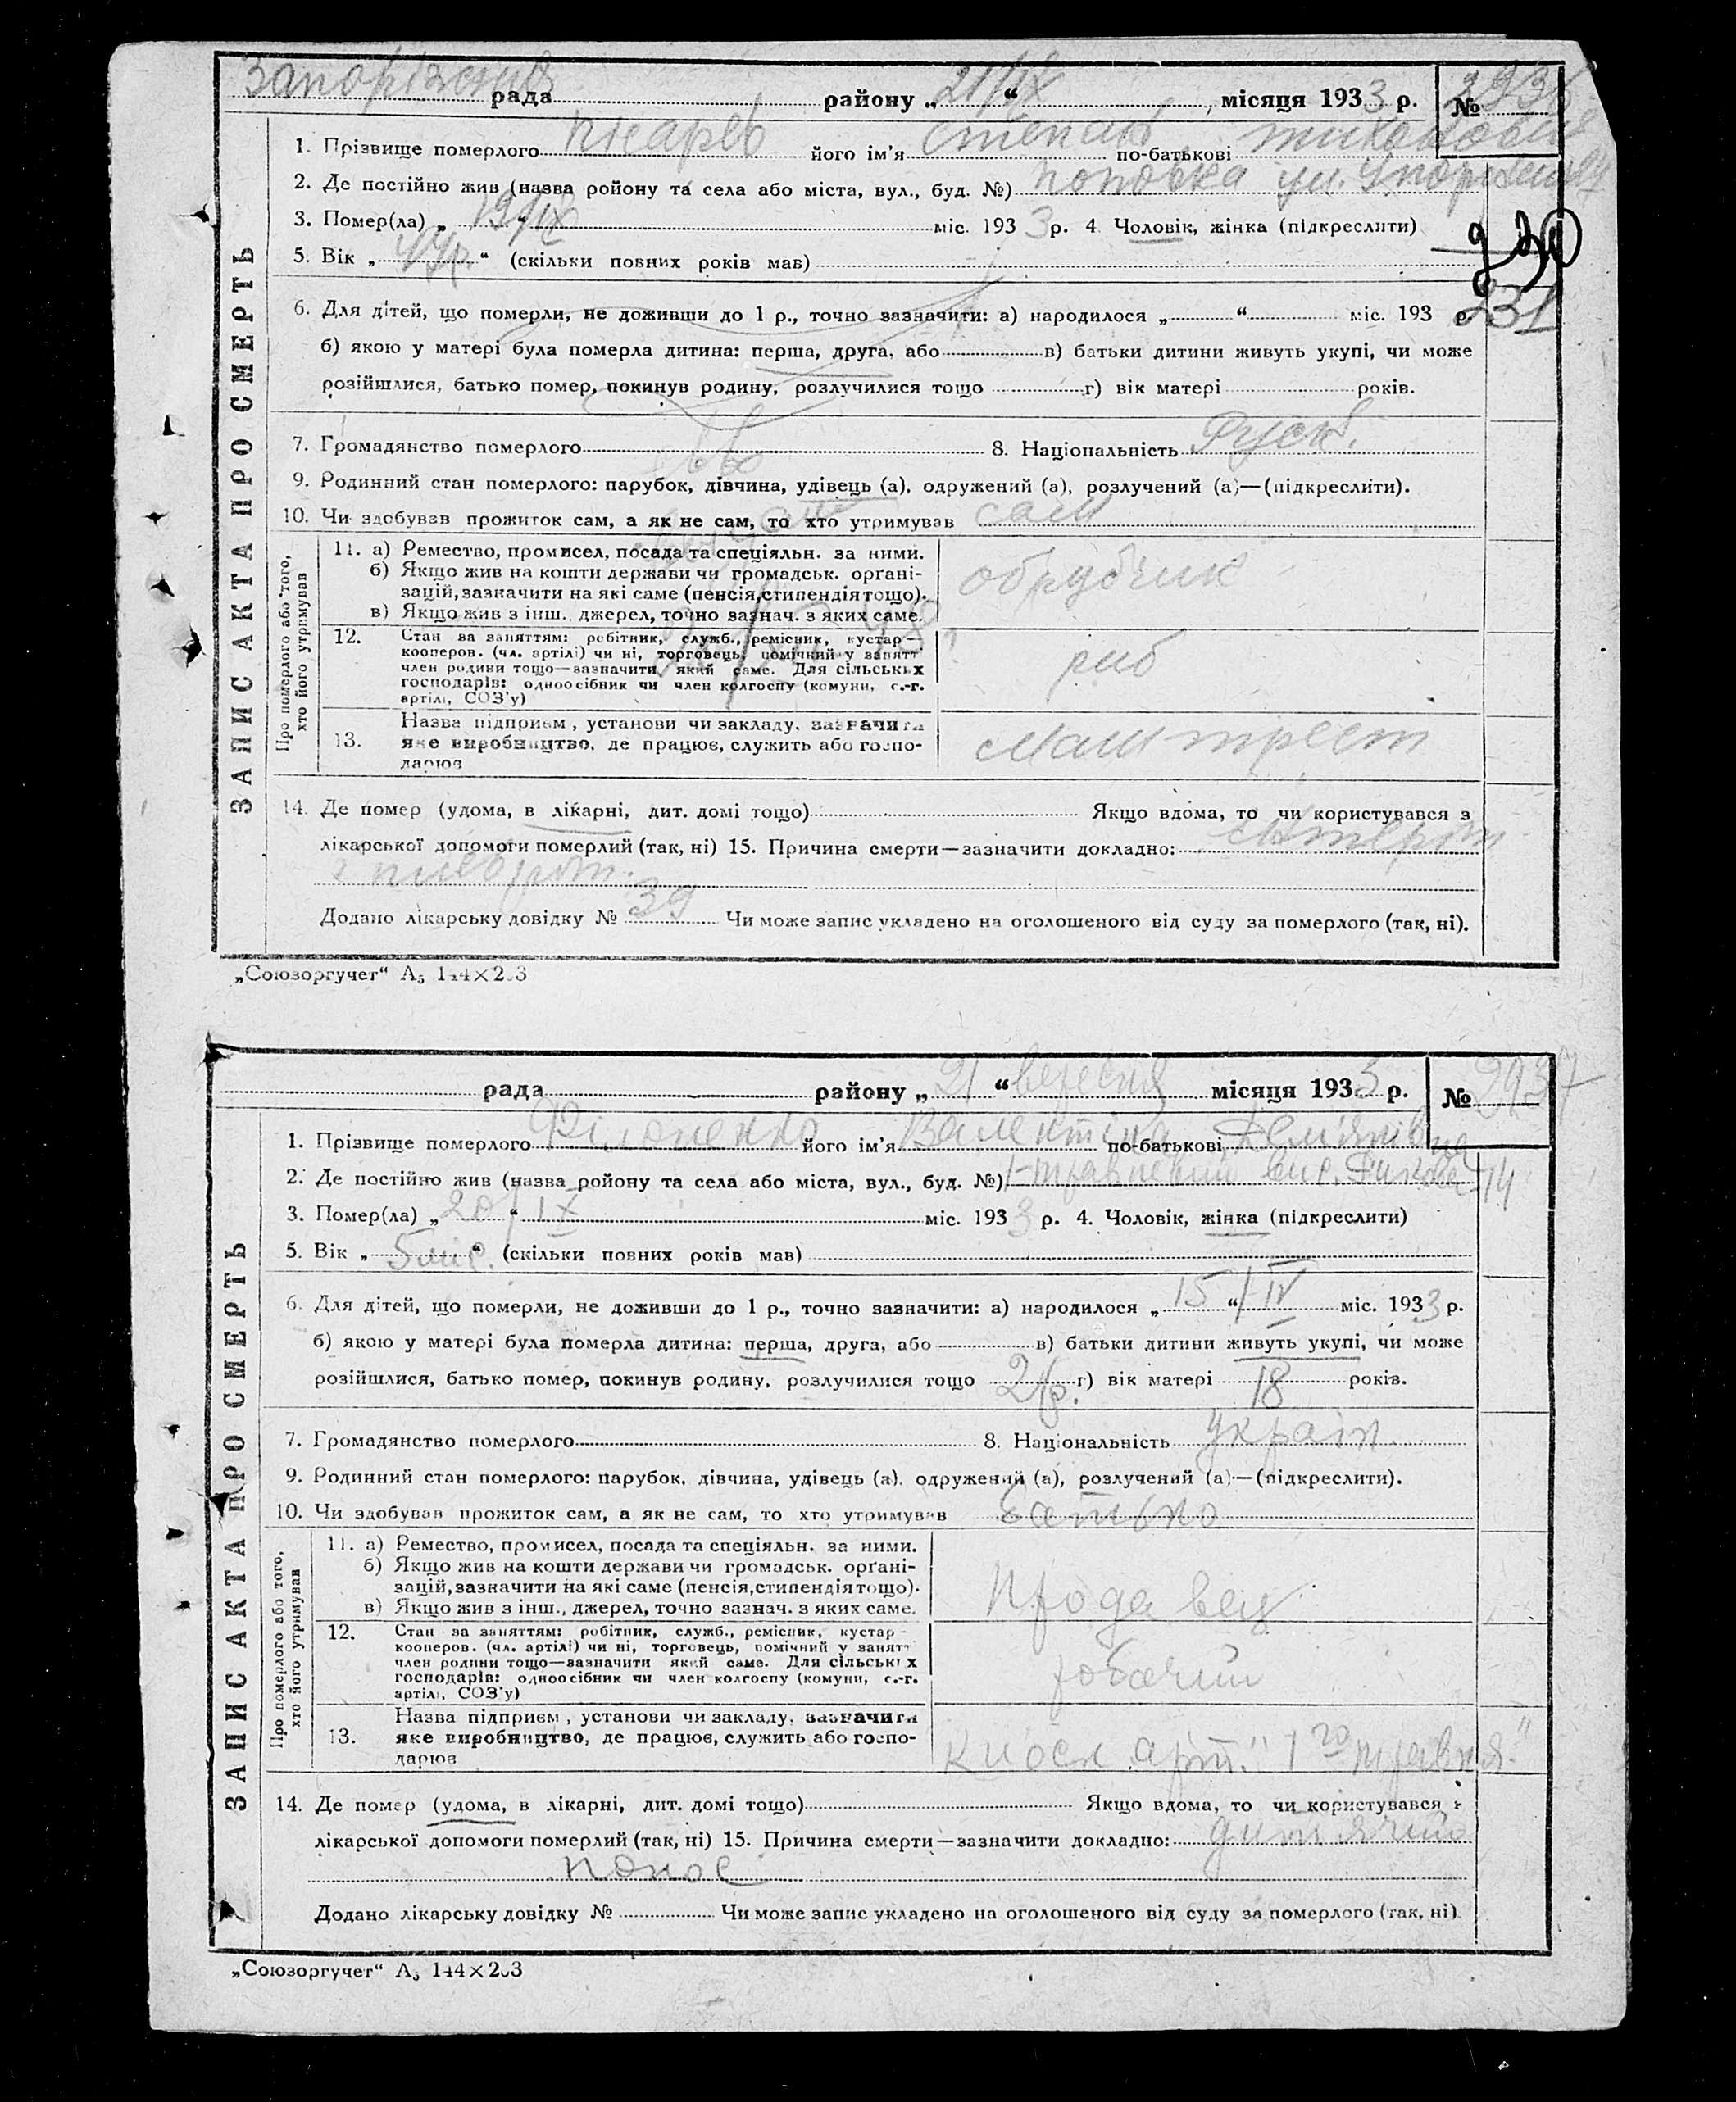 Запорізська рада району „21/IX“ місяця 1933 р. № 2936
1. Прізвище померлого Писарев його ім'я Степан по-батькові Тихонович
2. Де постійно жив (назва ройону та села або міста, вул., буд. №) Поповка ул.
3. Помер(ла) „19/IX“ міс. 1933 р. 4. Чоловік, жінка (підкреслити)
230
5. Вік „ “ (скільки повних років мав)
231
6. Для дітей, що померли, не доживши до 1 р., точно зазначити: а) народилося „ “ міс. 193 р.
б) якою у матері була померла дитина: перша, друга, або в) батьки дитини живуть укупі, чи може
розійшлися, батько помер, покинув родину, розлучилися тощо г) вік матері років.
7. Громадянство померлого 8. Національність Руск.
9. Родинний стан померлого: парубок, дівчина, удівець (а), одружений (а), розлучений (а)—(підкреслити).
10. Чи здобував прожиток сам, а як не сам, то хто утримував сам
ЗАПИС АКТА ПРО СМЕРТЬ
Про померлого або того, хто його утримував
11. а) Ремество, промисел, посада та спеціяльн. за ними.
б) Якщо жив на кошти держави чи громадськ. органі-
зацій, зазначити на які саме (пенсія, стипендія тощо).
в) Якщо жив з інш. джерел, точно зазнач. з яких саме.
обрубчик
12. Стан за заняттям: робітник, служб., ремісник, кустар—
кооперов. (чл. артілі) чи ні, торговець, помічний у занятт
член родини тощо—зазначити який саме. Для сільських
господарів: одноосібник чи член колгоспу (комуни, с.-г.
артілі, СОЗ'у)
роб
13. Назва підприєм, установи чи закладу, зазначити
яке виробництво, де працює, служить або госпо-
дарює
Маштрест
14. Де помер (удома, в лікарні, дит. домі тощо) Якщо вдома, то чи користувався з
лікарської допомоги померлий (так, ні) 15. Причина смерти—зазначити докладно:
Додано лікарську довідку № 39 Чи може запис укладено на оголошеного від суду за померлого (так, ні).
„Союзоргучет“ А₅ 144×203
рада району „21“ вересня місяця 1933 р. № 2937
1. Прізвище померлого Філоненко його ім'я Валентіна по-батькові Дем'янівна
2. Де постійно жив (назва ройону та села або міста, вул., буд. №) 1-травневий вис. 14
3. Помер(ла) „20/IX“ міс. 1933 р. 4. Чоловік, жінка (підкреслити)
5. Вік „5 міс.“ (скільки повних років мав)
6. Для дітей, що померли, не доживши до 1 р., точно зазначити: а) народилося „15“/IV міс. 1933 р.
б) якою у матері була померла дитина: перша, друга, або в) батьки дитини живуть укупі, чи може
розійшлися, батько помер, покинув родину, розлучилися тощо г) вік матері 18 років.
7. Громадянство померлого 8. Національність Україн.
9. Родинний стан померлого: парубок, дівчина, удівець (а), одружений (а), розлучений (а)—(підкреслити).
10. Чи здобував прожиток сам, а як не сам, то хто утримував батько
ЗАПИС АКТА ПРО СМЕРТЬ
Про померлого або того, хто його утримував
11. а) Ремество, промисел, посада та спеціяльн. за ними.
б) Якщо жив на кошти держави чи громадськ. органі-
зацій, зазначити на які саме (пенсія, стипендія тощо).
в) Якщо жив з інш., джерел, точно зазнач. з яких саме.
Продавец
12. Стан за заняттям: робітник, служб., ремісник, кустар-
кооперов. (чл. артілі) чи ні, торговець, помічний у занятт
член родини тощо—зазначити який саме. Для сільських
господарів: одноосібник чи член колгоспу (комуни, с.-г.
артілі, СОЗ'у)
робочий
13. Назва підприєм, установи чи закладу, зазначити
яке виробництво, де працює, служить або госпо-
дарює
Киоск арт. "1го травня"
14. Де помер (удома, в лікарні, дит. домі тощо) Якщо вдома, то чи користувався з
лікарської допомоги померлий (так, ні) 15. Причина смерти—зазначити докладно: дитячий
понос
Додано лікарську довідку № Чи може запис укладено на оголошеного від суду за померлого (так, ні).
„Союзоргучет“ А₅ 144×203